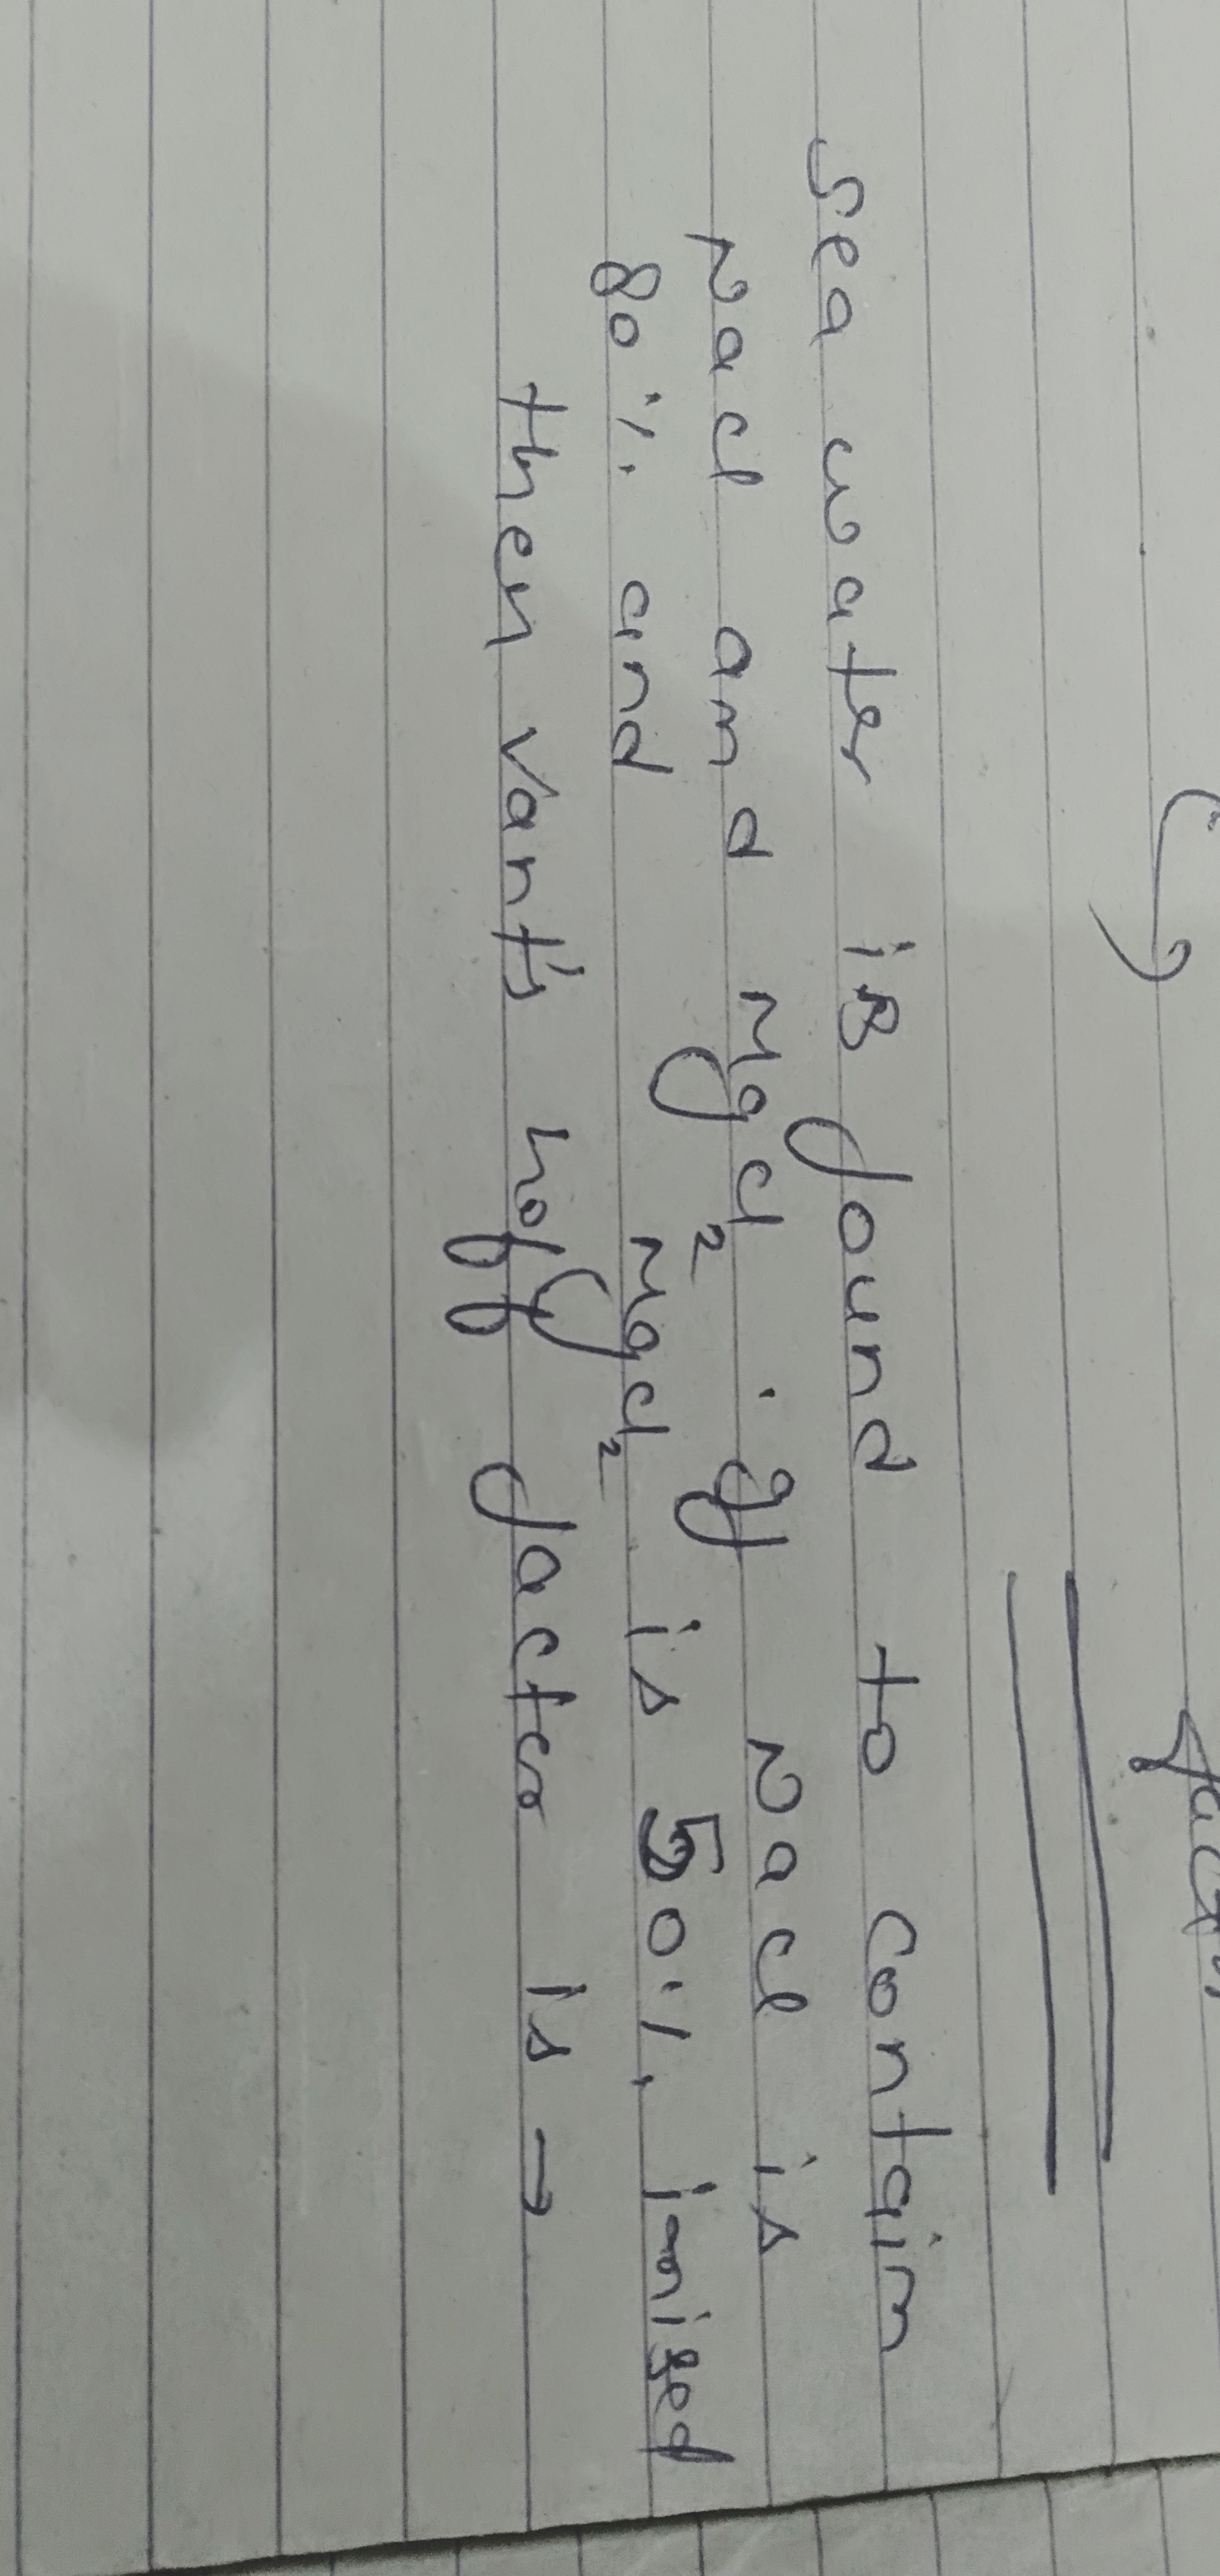 sea water is found to contain
Nacl and Mgcl₂ . if Nacl is
80%. and Mgcl₂ is 50%. ionised
then vant's hoff factor is →